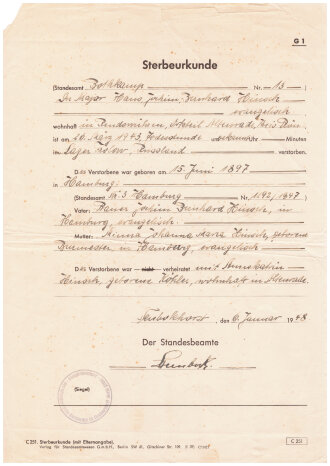 G 1
Sterbeurkunde
(Standesamt Bothkamp Nr. 13)
Der Major Hans Joachim Bernhard Hinsch
evangelisch
wohnhaft in
ist am 20. März 1943, Todesstunde unbekannt Minuten
im Lager Russland verstorben.
Die Verstorbene war geboren am 15. Juni 1897
in Hamburg.
(Standesamt Nr. 3 Hamburg Nr. 1192/1897)
Vater: Bauer Joachim Bernhard Hinsch, in
Hamburg, evangelisch
Mutter: Minna Johanna Maria Hinsch, geborene
Burmester in Hamburg, evangelisch
Die Verstorbene war nicht verheiratet mit
Hinsch, geborene Köhler, wohnhaft in
den 6. Januar 1948
Der Standesbeamte
(Siegel)
C 251. Sterbeurkunde (mit Elternangabe).
Verlag für Standesamtswesen G.m.b.H., Berlin SW 61, Gitschiner Str. 109
C 251